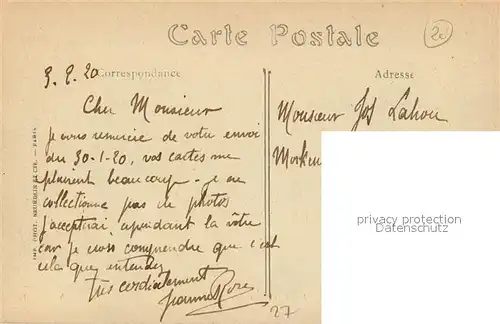 Carte Postale
2e
9.2.20
Correspondance
Adresse
Cher Monsieur
Je vous remercie de votre envoi
du 30-1-20, vos cartes me
plaisent beaucoup. Je ne
collectionne pas de photos
j'accepterai cependant la vôtre
car je crois comprendre que c'est
cela que entendez
Très cordialement
Jeanne
Monsieur Jos Lahou
IMP. PHOT. NEURDEIN ET CIE. — PARIS
privacy protection
Datenschutz
27